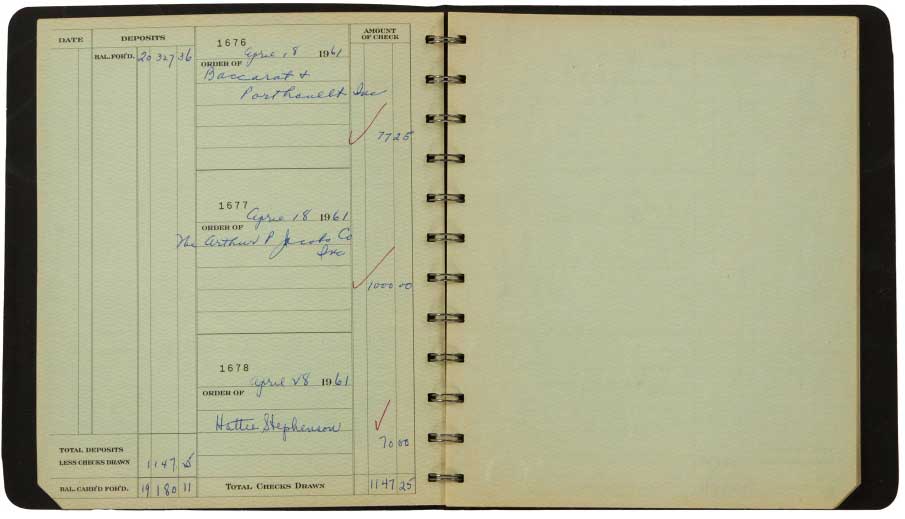 DATE
DEPOSITS
AMOUNT
OF CHECK
BAL. FOR'D. 20 327 36
1676
April 18 1961
ORDER OF
Baccarat &
Porthault Inc
77 25
1677
April 18 1961
ORDER OF
The Arthur P Jacobs Co
Inc
1000 00
1678
April 28 1961
ORDER OF
Hattie Stephenson
70 00
TOTAL DEPOSITS
LESS CHECKS DRAWN 1147 25
BAL. CARR'D FOR'D. 19 180 11
TOTAL CHECKS DRAWN 1147 25